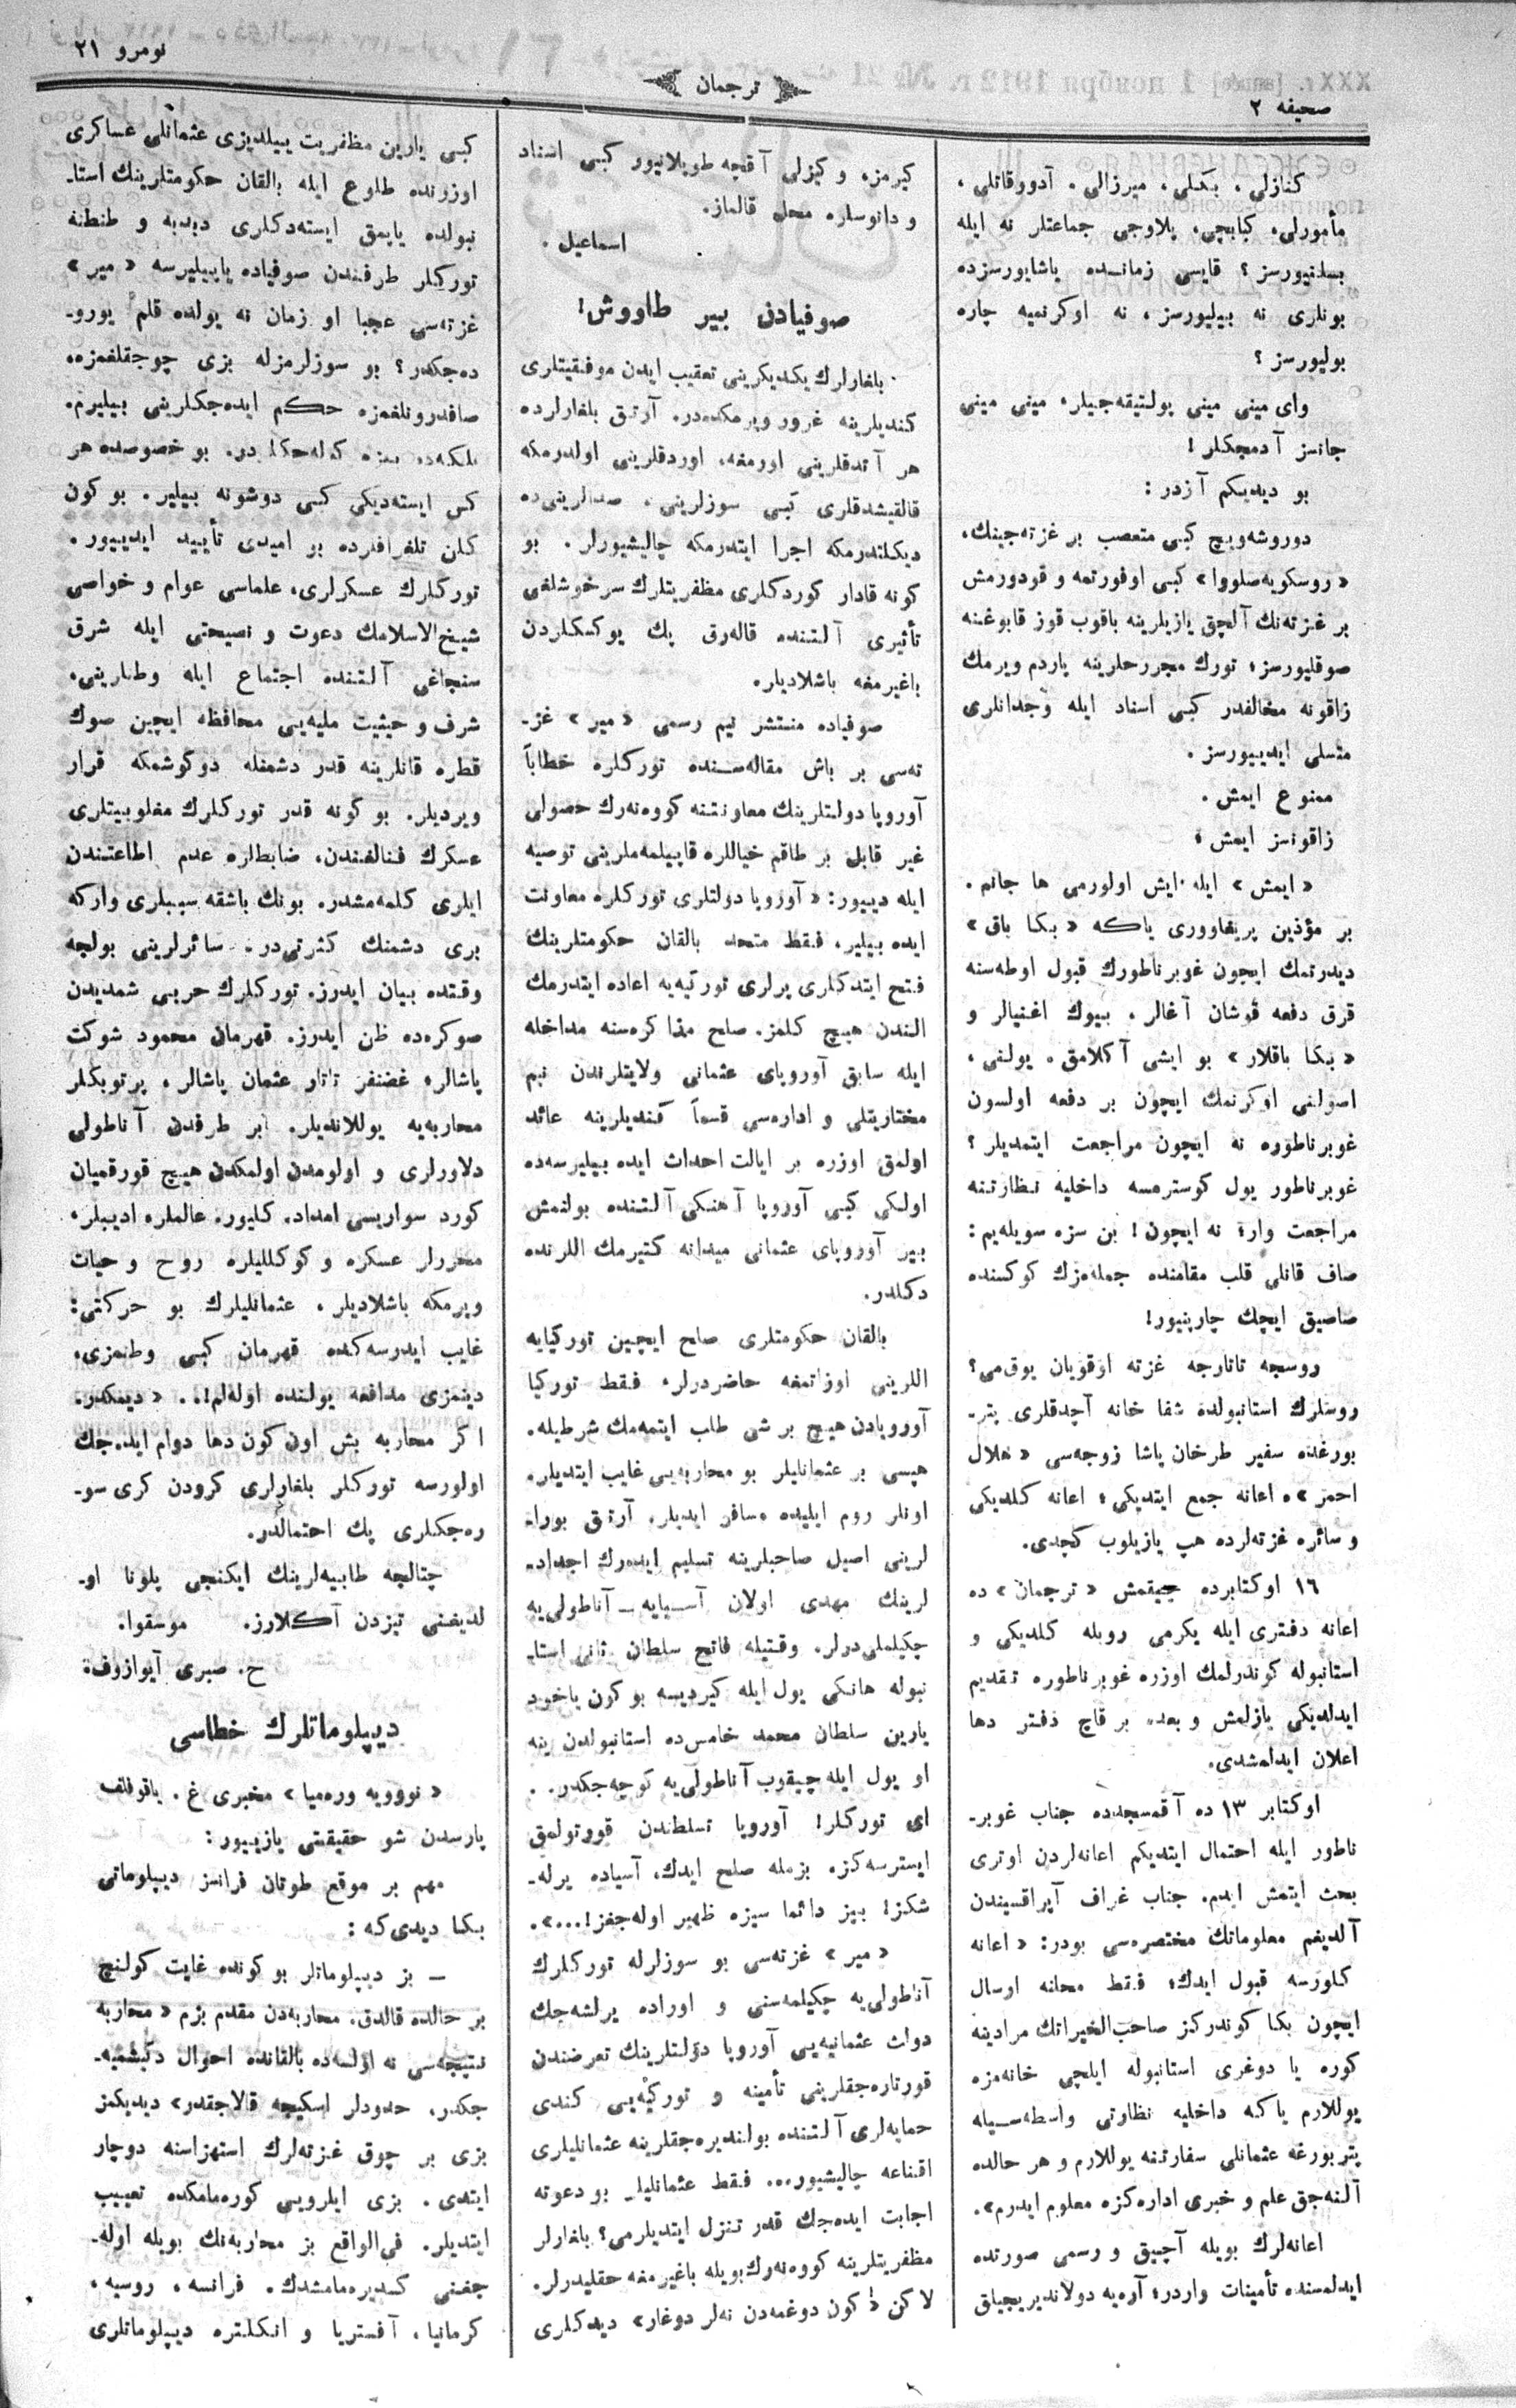 نومرو ٢١
ترجمان
صحيفه ٢
كنازلى، بكلى، ميرزالى، آدووقاتلى،
مأمورلى، كبابچى، پلاوجى جماعتلر نه ايله
بسلنيورسز؟ قايسى زمانـده ياشايورسزده
بونلرى نه بيليورسز، نه اوكرنميه چاره
بوليورسز؟
واى مينى مينى پولتيقه‌جيلر، مينى مينى
جانسز آدمجكلر!
بو ديديكم آزدر:
دوروشه‌ويچ كبى متعصب بر غزته‌جينك،
« روسكويه‌صلووا » كبى اوفورتمه و قودورمش
بر غزته‌نك آلچق يازيلرينه باقوب قوز قابوغنه
صوقليورسز؛ تورك مجروحلرينه ياردم ويرمك
زاقونه مخالفدر كبى اسناد ايله وجدانلرى
متسلى ايدييورسز.
ممنوع ايمش.
زاقونسز ايمش؛
« ايمش » ايله ايش اولورمى ها جانم.
بر مؤذين پريغاوورى ياكه « بكا باق »
ديدرتمك ايچون غوبرناطورك قبول اوطه‌سنه
قرق دفعه قوشان آغالر، بيوك اغنيالر و
« بكا باقلار » بو ايشى آكلامق، يولنى،
اصولنى اوكرنمك ايچون بر دفعه اولسون
غوبرناطوره نه ايچون مراجعت ايتمديلر؟
غوبرناطور يول كوسترمسه داخليه نظارتنه
مراجعت وار؛ نه ايچون! بن سزه سويله‌يم:
صاف قانلى قلب مقامنده جمله‌مزك كوكسنده
صاصيق ايچك چارپنيور!
روسچه تاتارجه غزته اوقويان يوق‌مى؟
روسلرك استانبولده شفا خانه آچدقلرى پتر‌ـ
بورغده سفير طرخان پاشا زوجه‌سى « هلال
احمر »ه اعانه جمع ايتديكى؛ اعانه كلديكى
و سائره غزته‌لرده هپ يازيلوب كچدى.
١٦ اوكتابرده چيقمش « ترجمان » ده
اعانه دفترى ايله يكرمى روبله كلديكى و
استانبوله كوندرلمك اوزره غوبرناطوره تقديم
ايدلديكى يازلمش و بعده بر قاچ دفتر دها
اعلان ايدلمشدى.
اوكتابر ١٣ ده آقمسجدده جناب غوبر‌ـ
ناطور ايله احتمال ايتديكم اعانه‌لردن اوترى
بحث ايتمش ايدم. جناب غراف آپراقسيندن
آلديغم معلوماتك مختصره‌سى بودر: « اعانه
كلورسه قبول ايدك؛ فقط محانه ارسال
ايچون بكا كوندركز صاحب‌الخيراتك مرادينه
كوره يا دوغرى استانبوله ايلچى خانه‌مزه
يوللارم ياكه داخليه نظارتى واسطه‌سيله
پتربورغه عثمانلى سفارتنه يوللارم و هر حالده
آلنه‌جق علم و خبرى اداره‌كزه معلوم ايدرم».
اعانه‌لرك بويله آچيق و رسمى صورتده
ايدلمسنده تأمينات واردر؛ آره‌يه دولانديريجيلق
كيرمز، و كيزلى آقچه طوپلانيور كبى اسناد
و دانوسلره محل قالماز.
اسماعيل.
صوفيادن بير طاووش!
بلغارلرك يكديكرينى تعقيب ايدن موفقيتلرى
كنديلرينه غرور ويرمكده‌در. آرتق بلغارلرده
هر آتدقلرينى اورمغه، اوردقلرينى اولدرمكه
قالقيشدقلرى كبى سوزلرينى، صدالرينى‌ده
ديكلتدرمكه اجرا ايتدرمكه چاليشيورلر. بو
كونه قادار كوردكلرى مظفريتلرك سرخوشلغى
تأثيرى آلتنده قاله‌رق پك يوكسكلردن
باغيرمغه باشلاديلر.
صوفياده منتشر نيم رسمى « مير » غز‌ـ
ته‌سى بر باش مقاله‌سنده توركلره خطاباً
آوروپا دولتلرينك معاونتنه كووه‌نه‌رك حصولى
غير قابل بر طاقم خياللره قاپيلمه‌ملرينى توصيه
ايله دييور: « آوروپا دولتلرى توركلره معاونت
ايده بيلير، فقط متحد بالقان حكومتلرينك
فتح ايتدكلرى يرلرى توركيه‌يه اعاده ايتدرمك
الندن هيچ كلمز. صلح مذاكره‌سنه مداخله
ايله سابق آوروپاى عثمانى ولايتلرندن نيم
مختاريتلى و اداره‌سى قسماً كنديلرينه عائد
اولمق اوزره بر ايالت احداث ايده بيليرسه‌ده
اولكى كبى آوروپا آهنكى آلتنده بولنمش
بير آوروپاى عثمانى ميدانه كتيرمك اللرنده
دكلدر.
بالقان حكومتلرى صلح ايچين توركيايه
اللرينى اوزاتمغه حاضردرلر، فقط توركيا
آوروپادن هيچ بر شى طلب ايتمه‌مك شرطيله.
هپسى بر عثمانليلر بو محاربه‌يى غايب ايتديلر.
اونلر روم ايليده مسافر ايديلر. آرتق بورا‌ـ
لرينى اصيل صاحبلرينه تسليم ايده‌رك اجداد‌ـ
لرينك مهدى اولان آسيايه ــ آناطولى‌يه
چكيلملى‌درلر. وقتيله فاتح سلطان ثانى استا‌ـ
نبوله هانكى يول ايله كيرديسه بو كون ياخود
يارين سلطان محمد خامس‌ده استانبولدن ينه
او يول ايله چيقوب آناطولى‌يه كوچه‌جكدر..
اى توركلر! آوروپا تسلطندن قورتولمق
ايسترسه‌كز، بزمله صلح ايدك، آسياده يرله‌ـ
شكز! بيز دائما سيزه ظهير اوله‌جغز!...».
« مير » غزته‌سى بو سوزلرله توركلرك
آناطولى‌يه چكيلمه‌سنى و اوراده يرلشه‌جك
دولت عثمانيه‌يى آوروپا دولتلرينك تعرضندن
قورتاره‌جقلرينى تأمينه و توركيه‌يى كندى
حمايه‌لرى آلتنده بولنديره‌جقلرينه عثمانليلرى
اقناعه چاليشيور... فقط عثمانليلر بو دعوته
اجابت ايده‌جك قدر تنزل ايتديلرمى؟ بلغارلر
مظفريتلرينه كووه‌نه‌رك بويله باغيرمغه حقليدرلر.
لاكن « كون دوغمه‌دن نه‌لر دوغار» ديدكلرى
كبى يارين مظفريت ييلديزى عثمانلى عساكرى
اوزرنده طلوع ايله بالقان حكومتلرينك استا‌ـ
نبولده ياپمق ايسته‌دكلرى دبدبه و طنطنه
توركلر طرفندن صوفياده ياپيليرسه « مير »
غزته‌سى عجبا او زمان نه يولده قلم يورو‌ـ
ده‌جكدر؟ بو سوزلرمزله بزى چوجقلغمزه،
صافدرونلغمزه حكم ايده‌جكلرينى بيليرم.
بلكه‌ده بيزه كوله‌جكلردر. بو خصوصده هر
كس ايسته‌ديكى كبى دوشونه بيلير. بو كون
كلن تلغرافلرده بو اميدى تأييد ايدييور.
توركلرك عسكرلرى، علماسى عوام و خواصى
شيخ‌الاسلامك دعوت و نصيحتى ايله شرق
سنجاغى آلتنده اجتماع ايله وطنلرينى،
شرف و حيثيت مليه‌يى محافظه ايچين صوك
قطره قانلرينه قدر دشمنله دوكوشمكه قرار
ويرديلر. بو كونه قدر توركلرك مغلوبيتلرى
عسكرك فنالغندن، ضابطلره عدم اطاعتندن
ايلرى كلمه‌مشدر. بونك باشقه سببلرى واركه
برى دشمنك كثرتى‌در. سائرلرينى بولجه
وقتده بيان ايدرز. توركلرك حربى شمديدن
صوكره‌ده ظن ايدرز. قهرمان محمود شوكت
پاشالر، غضنفر تاتار عثمان پاشالر، پرتوبكلر
محاربه‌يه يوللانديلر. بر طرفدن آناطولى
دلاورلرى و اولومدن اولمكدن هيچ قورقميان
كورد سواريسى امداد، كليور. عالملر، اديبلر،
محررلر عسكره و كوكلليلره روح و حيات
ويرمكه باشلاديلر، عثمانليلرك بو حركتى:
غايب ايدرسه‌كده قهرمان كبى وطنمزى،
دينمزى مدافعه يولنده اوله‌لم!.. « ديمكدر.
اكر محاربه بش اون كون دها دوام ايده‌جك
اولورسه توركلر بلغارلرى كرودن كرى سو‌ـ
ره‌جكلرى پك احتمالدر.
چتالجه طابيه‌لرينك ايكنجى پلونا او‌ـ
لديغنى تيزدن آكلارز. موسقوا.
ح. صبرى آيوازوف؛
ديپلوماتلرك خطاسى
« نوويه وره‌ميا » مخبرى غ. ياقوفلف
پارسدن شو حقيقتى يازييور:
مهم بر موقع طوتان فرانسز ديپلوماتى
بكا ديدى‌كه:
ــ بز ديپلوماتلر بو كونده غايت كولنچ
بر حالده قالدق. محاربه‌دن مقدم بزم « محاربه
نتيجه‌سى نه اولسه‌ده بالقانده احوال دكيشميه‌ـ
جكدر، حدودلر اسكيچه قالاجقدر» ديديكمز
بزى بر چوق غزته‌لرك استهزاسنه دوچار
ايتدى. بزى ايلرويى كوره‌مامكده تعييب
ايتديلر. فى‌الواقع بز محاربه‌نك بويله اوله‌ـ
جغنى كسديره‌مامشدك. فرانسه، روسيه،
كرمانيا، آفستريا و انكلتره ديپلوماتلرى